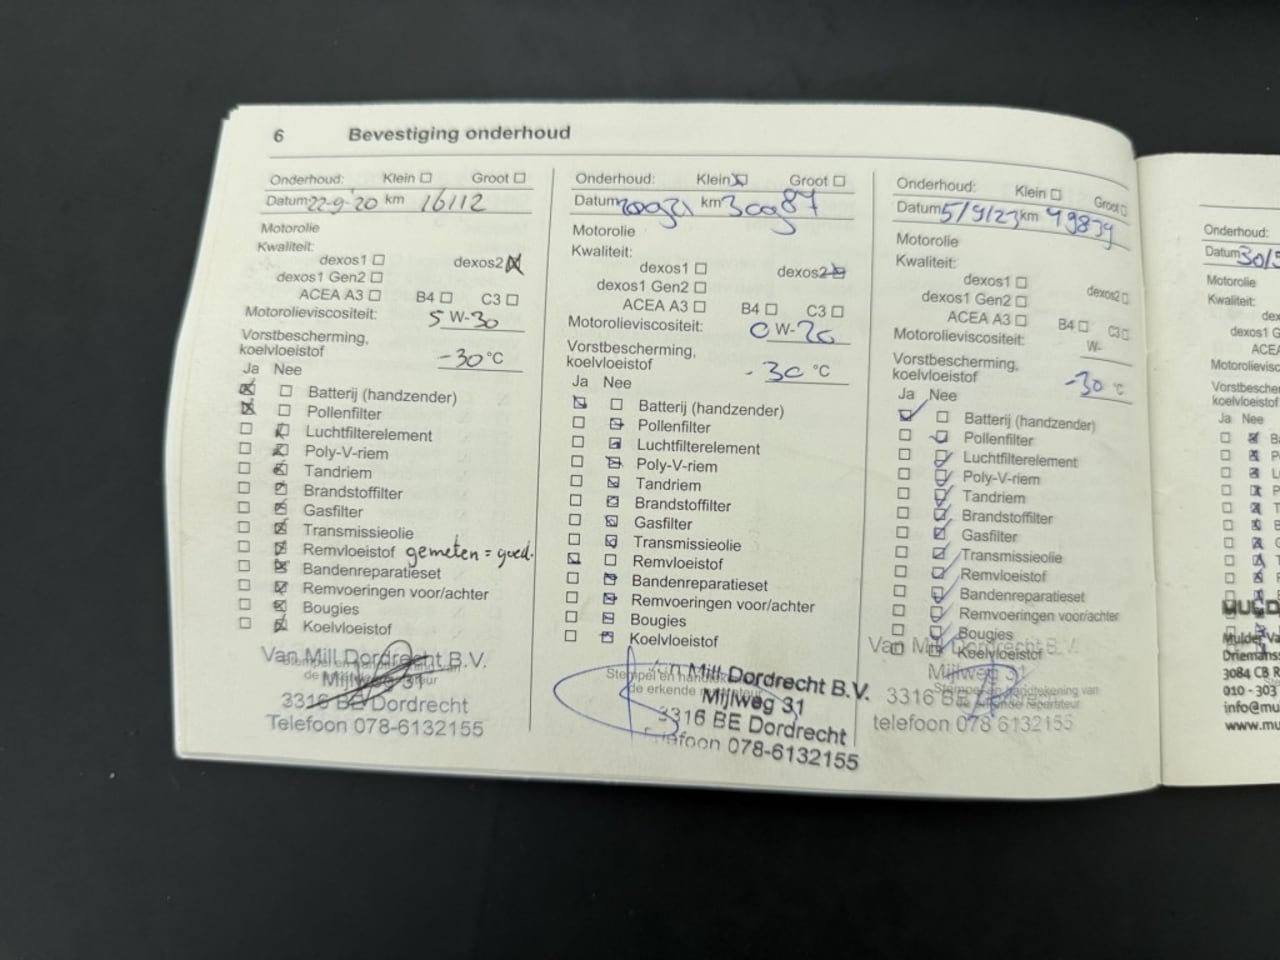 6 Bevestiging onderhoud
Onderhoud: Klein Groot
Datum 22-9-'20 km 16112
Motorolie
Kwaliteit:
dexos1 dexos2
dexos1 Gen2
ACEA A3 B4 C3
Motorolieviscositeit: 5 W-30
Vorstbescherming,
koelvloeistof -30 °C
Ja Nee
Batterij (handzender)
Pollenfilter
Luchtfilterelement
Poly-V-riem
Tandriem
Brandstoffilter
Gasfilter
Transmissieolie
Remvloeistof gemeten = goed.
Bandenreparatieset
Remvoeringen voor/achter
Bougies
Koelvloeistof
Van Mill Dordrecht B.V.
Mijlweg 31
3316 BE Dordrecht
Telefoon 078-6132155
Onderhoud: Klein Groot
Datum km 30987
Motorolie
Kwaliteit:
dexos1 dexos2
dexos1 Gen2
ACEA A3 B4 C3
Motorolieviscositeit: 0 W-20
Vorstbescherming,
koelvloeistof -30 °C
Ja Nee
Batterij (handzender)
Pollenfilter
Luchtfilterelement
Poly-V-riem
Tandriem
Brandstoffilter
Gasfilter
Transmissieolie
Remvloeistof
Bandenreparatieset
Remvoeringen voor/achter
Bougies
Koelvloeistof
Stempel en
de erkende
Van Mill Dordrecht B.V.
Mijlweg 31
3316 BE Dordrecht
Telefoon 078-6132155
Onderhoud: Klein Groot
Datum 5/9/23 km 49839
Motorolie
Kwaliteit:
dexos1 dexos2
dexos1 Gen2
ACEA A3 B4 C3
Motorolieviscositeit: W-
Vorstbescherming,
koelvloeistof -30 °C
Ja Nee
Batterij (handzender)
Pollenfilter
Luchtfilterelement
Poly-V-riem
Tandriem
Brandstoffilter
Gasfilter
Transmissieolie
Remvloeistof
Bandenreparatieset
Remvoeringen voor/achter
Bougies
Koelvloeistof
Van Mill Dordrecht B.V.
Mijlweg 31
Stempel en handtekening van
3316 BE
telefoon 078 6132155
Onderhoud:
Datum 30/5
Motorolie
Kwaliteit:
dexos1 G
ACEA
Motorolievisc
Vorstbescher
koelvloeistof
Ja Nee
MULD
Mulder Va
Driemans
3084 CB R
010 - 303
info@mu
www.mu